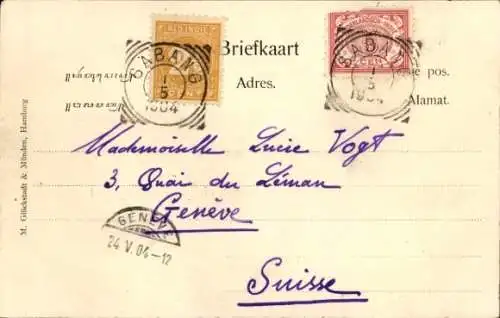 Briefkaart
SABANG
1
5
1904
SABANG
1
5
1904
Adres.
pos.
Alamat.
M. Glückstadt & Münden, Hamburg
Mademoiselle Lucie Vogt
3, Quai du Léman
Genève
Suisse
GENÈVE
24 V. 04-12